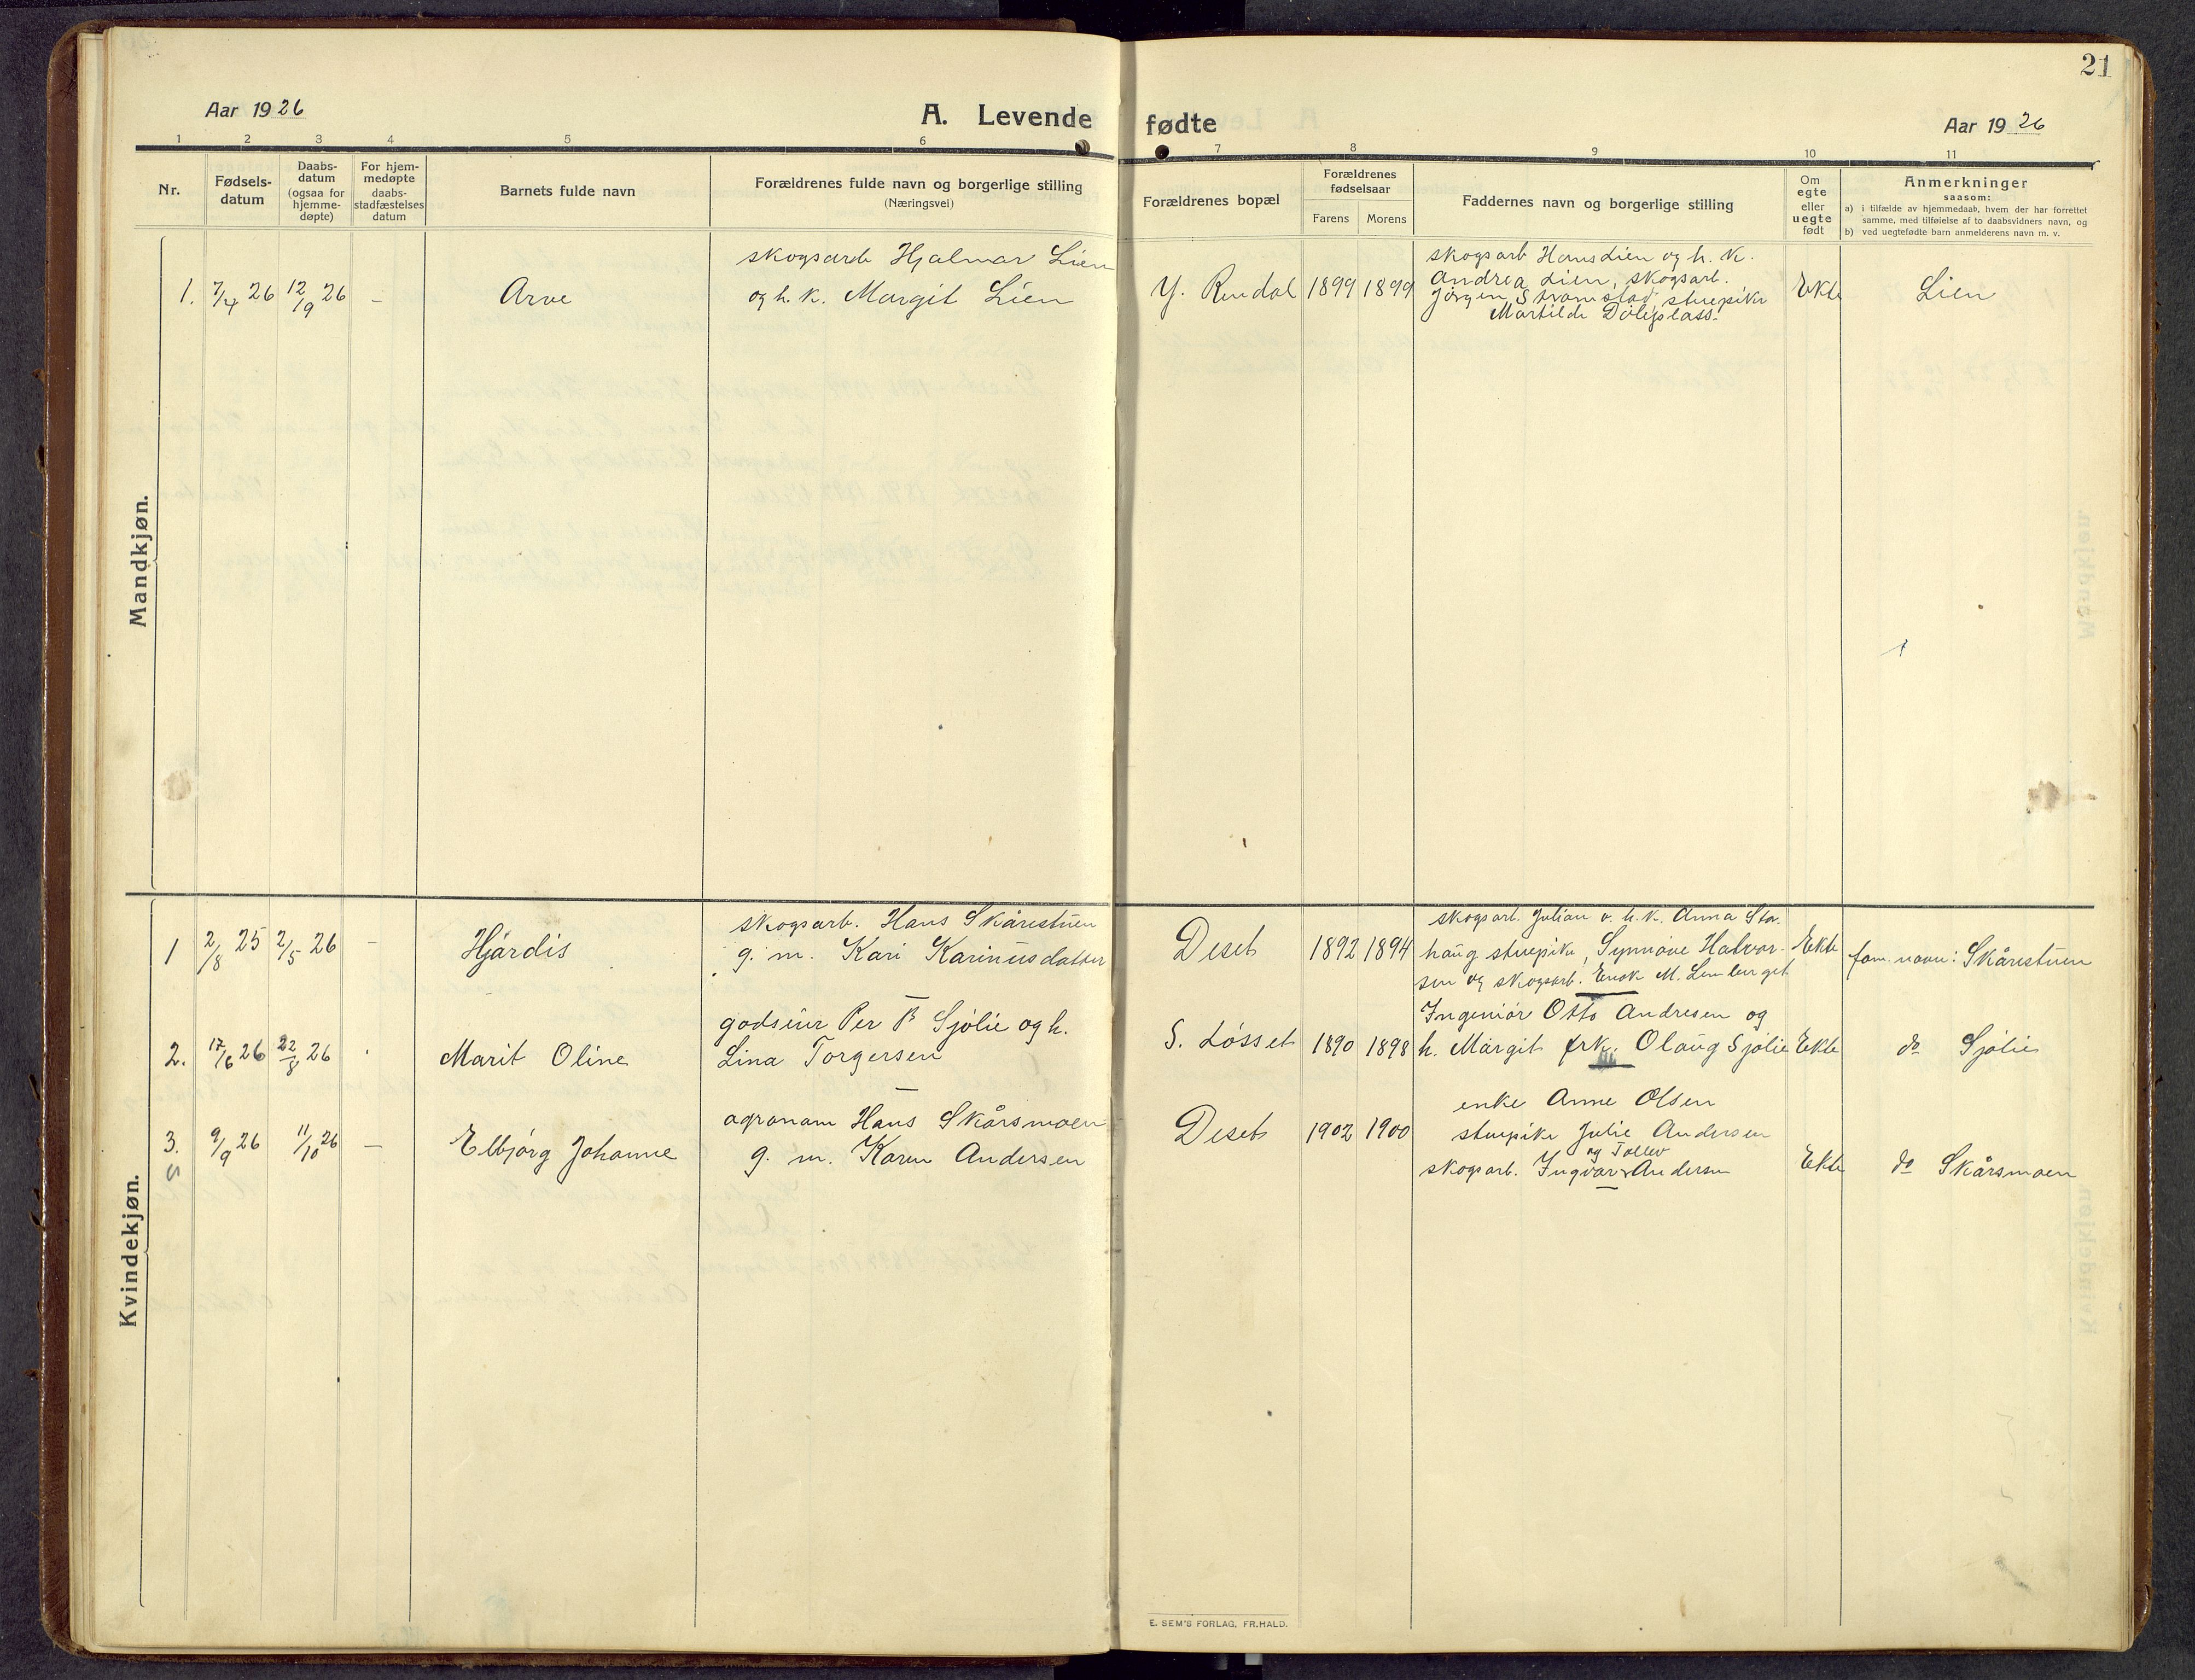 21
Aar 1926
A. Levende fødte
Aar 1926
1 2 3 4 5 6 7 8 9 10 11
Nr.
Fødsels-
datum
Daabs-
datum
(ogsaa for
hjemme-
døpte)
For hjem-
medøpte
daabs-
stadfæstelses
datum
Barnets fulde navn
Forældrenes fulde navn og borgerlige stilling
(Næringsvei)
Forældrenes bopæl
Forældrenes
fødselsaar
Farens Morens
Faddernes navn og borgerlige stilling
Om
egte
eller
uegte
født
Anmerkninger
saasom:
a) i tilfælde av hjemmedaab, hvem der har forrettet
samme, med tilføielse af to daabsvidners navn, og
b) ved uegtefødte barn anmelderens navn m. v.
Mandkjøn.
1. 7/4 26 12/9 26 - Arve
skogsarb Hjalmar Lien
og h. k. Margit Lien
Y. Rendal 1899 1899
skogsarb Hans Lien og h. k.
Andrea Lien, skogsarb.
Jørgen Strømstad, stuepike
Martilde
Ekte Lien
Kvindekjøn.
1 2/8 25 2/5 26 - Hjørdis
skogsarb. Hans Skårestuen
g. m. Kari Karinusdatter
Deset 1892 1894
skogsarb. Julian o. h. k. Anna Sta-
haug stuepike, Synnøve Halvor-
sen og skogsarb. M.
Ekte fam. navn: Skårestuen
2. 17/6 26 22/8 26 Marit Oline
godseier Per P Sjølie og h.
Lina Torgersen
S. Løsset 1890 1898
Ingeniør Otto Andresen og
h. Margit frk. Olaug Sjølie
Ekte do Sjølie
3. 9/9 26 11/10 26 - Elbjørg Johanne
S
agronom Hans Skårsmoen
g. m. Karen Andersen
Deset 1902 1900
enke Anne Olsen
stuepike Julie Andersen
og Tollev
skogsarb. Ingvar Andersen
Ekte do Skårsmoen
E. SEM'S FORLAG, FR.HALD.